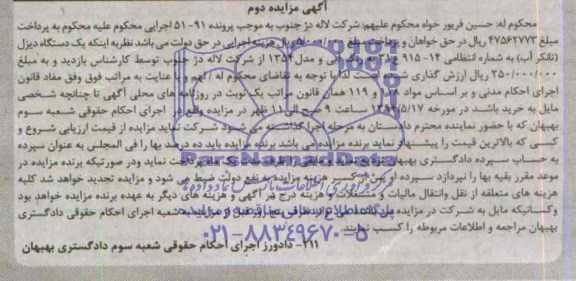 آگهی مزایده دوم
محکوم له: حسین فریور خواه محکوم علیهم: شرکت لاله دژ جنوب به موجب پرونده ۹۱-۵۱ اجرایی محکوم علیه محکوم به پرداخت
مبلغ ۴۷۵۶۲۷۷۳ ریال در حق خواهان و پرداخت مبلغ ریال هزینه اجرایی در حق دولت می باشد نظر به اینکه یک دستگاه دیزل
(تانکر آب) به شماره انتظامی ۱۴- ۹۱۵ رنگ آبی و مدل ۱۳۵۴ از شرکت لاله دژ جنوب توسط کارشناس بازدید و به مبلغ
۲۵۰/۰۰۰/۰۰۰ ریال ارزش گذاری لذا با توجه به تقاضای محکوم له و با عنایت به مراتب فوق وفق مفاد قانون
اجرای احکام مدنی و بر اساس مواد و ۱۱۹ همان قانون مراتب یک نوبت در روزنامه های محلی آگهی تا چنانچه شخصی
مایل به خرید باشد در مورخه ۱۳۹۳/۵/۱۷ ساعت ۹ صبح الی ۱۱ ظهر در مزایده واقع در اجرای احکام حقوقی شعبه سوم
بهبهان که با حضور نماینده محترم دادستان به مرحله اجرا گذاشته می شود شرکت نماید مزایده از قیمت ارزیابی شروع و
کسی که بالاترین قیمت را پیشنهاد نماید برنده مزایده می باشد برنده مزایده باید ده درصد بها را فی المجلس به عنوان سپرده
به حساب سپرده دادگستری نماید ودر صورتیکه برنده مزایده در
موعد مقرر بقیه بها را نپردازد سپرده او پس از کسر هزینه مزایده به نفع دولت ضبط می شود و مزایده تجدید خواهد شد کلیه
هزینه های متعلقه از نقل وانتقال مالیات و هزینه درج در آگهی و هزینه های دیگر به عهده برنده مزایده خواهد بود
وکسانیکه مایل به شرکت در مزایده می باشند شعبه اجرای احکام حقوقی دادگستری
بهبهان مراجعه و اطلاعات مربوطه را کسب نمایند.
۲۱۱- دادورز اجرای احکام حقوقی شعبه سوم دادگستری بهبهان
ParsNamadData
۰۲۱-۸۸۳۴۹۶۷۰-۵